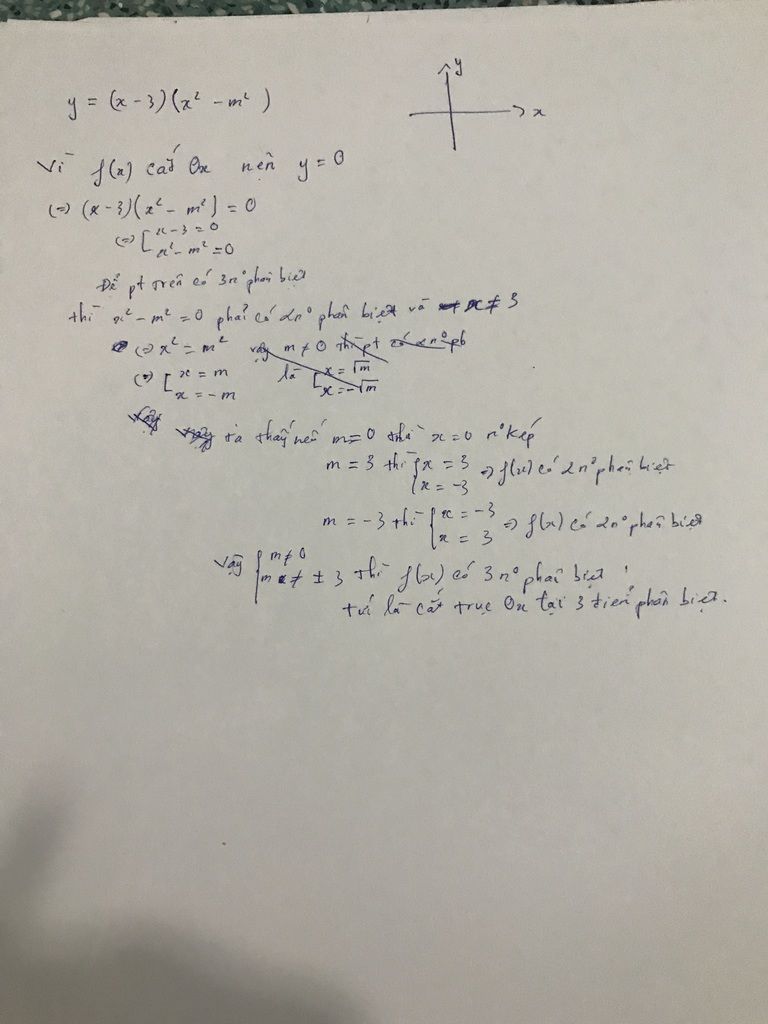 y = (x - 3)(x² - m²)
y
x
Vì f(x) cắt Ox nên y = 0
(=) (x - 3)(x² - m²) = 0
(=) [ x - 3 = 0
x² - m² = 0
Để pt trên có 3 n° phân biệt
thì x² - m² = 0 phải có 2 n° phân biệt và x ≠ 3
(=) x² = m² vậy m ≠ 0 thì pt có 2 n° pb
(=) [ x = m là [ x = √m
x = -m x = -√m
Vậy Vậy ta thấy nếu m = 0 thì x = 0 n° kép
m = 3 thì { x = 3 => f(x) có 2 n° phân biệt
x = -3
m = -3 thì { x = -3 => f(x) có 2 n° phân biệt
x = 3
Vậy { m ≠ 0
m ≠ ± 3 thì f(x) có 3 n° phân biệt
tức là cắt trục Ox tại 3 điểm phân biệt.